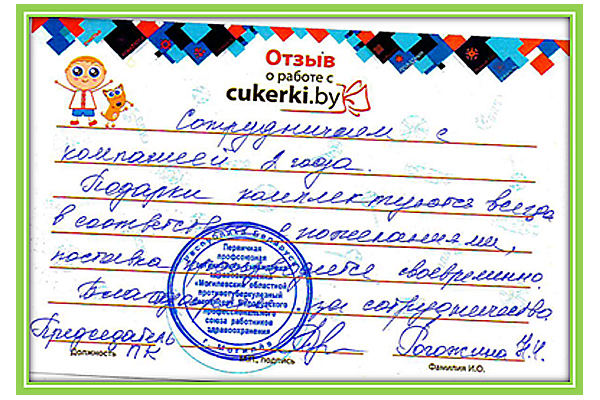 Отзыв
о работе с
cukerki.by
Сотрудничаем с
компанией 2 года.
Подарки комплектуются всегда
в соответствии с пожеланиями,
поставка своевременно.
за сотрудничество
Председатель
ПК
Рогожина Н.Н.
Должность
М.П., подпись
Фамилия И.О.
Республика Беларусь
Первичная
профсоюзная
здравоохранения
«Могилевский областной
противотуберкулезный
Белорусского
профессионального
союза работников
здравоохранения
г. Могилев